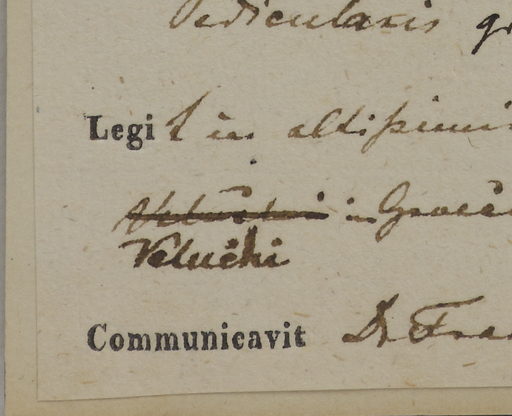 Pedicularis gr
Legit in altissimi
Veluchi in Graec
Veluchi
Communicavit Dr Fra